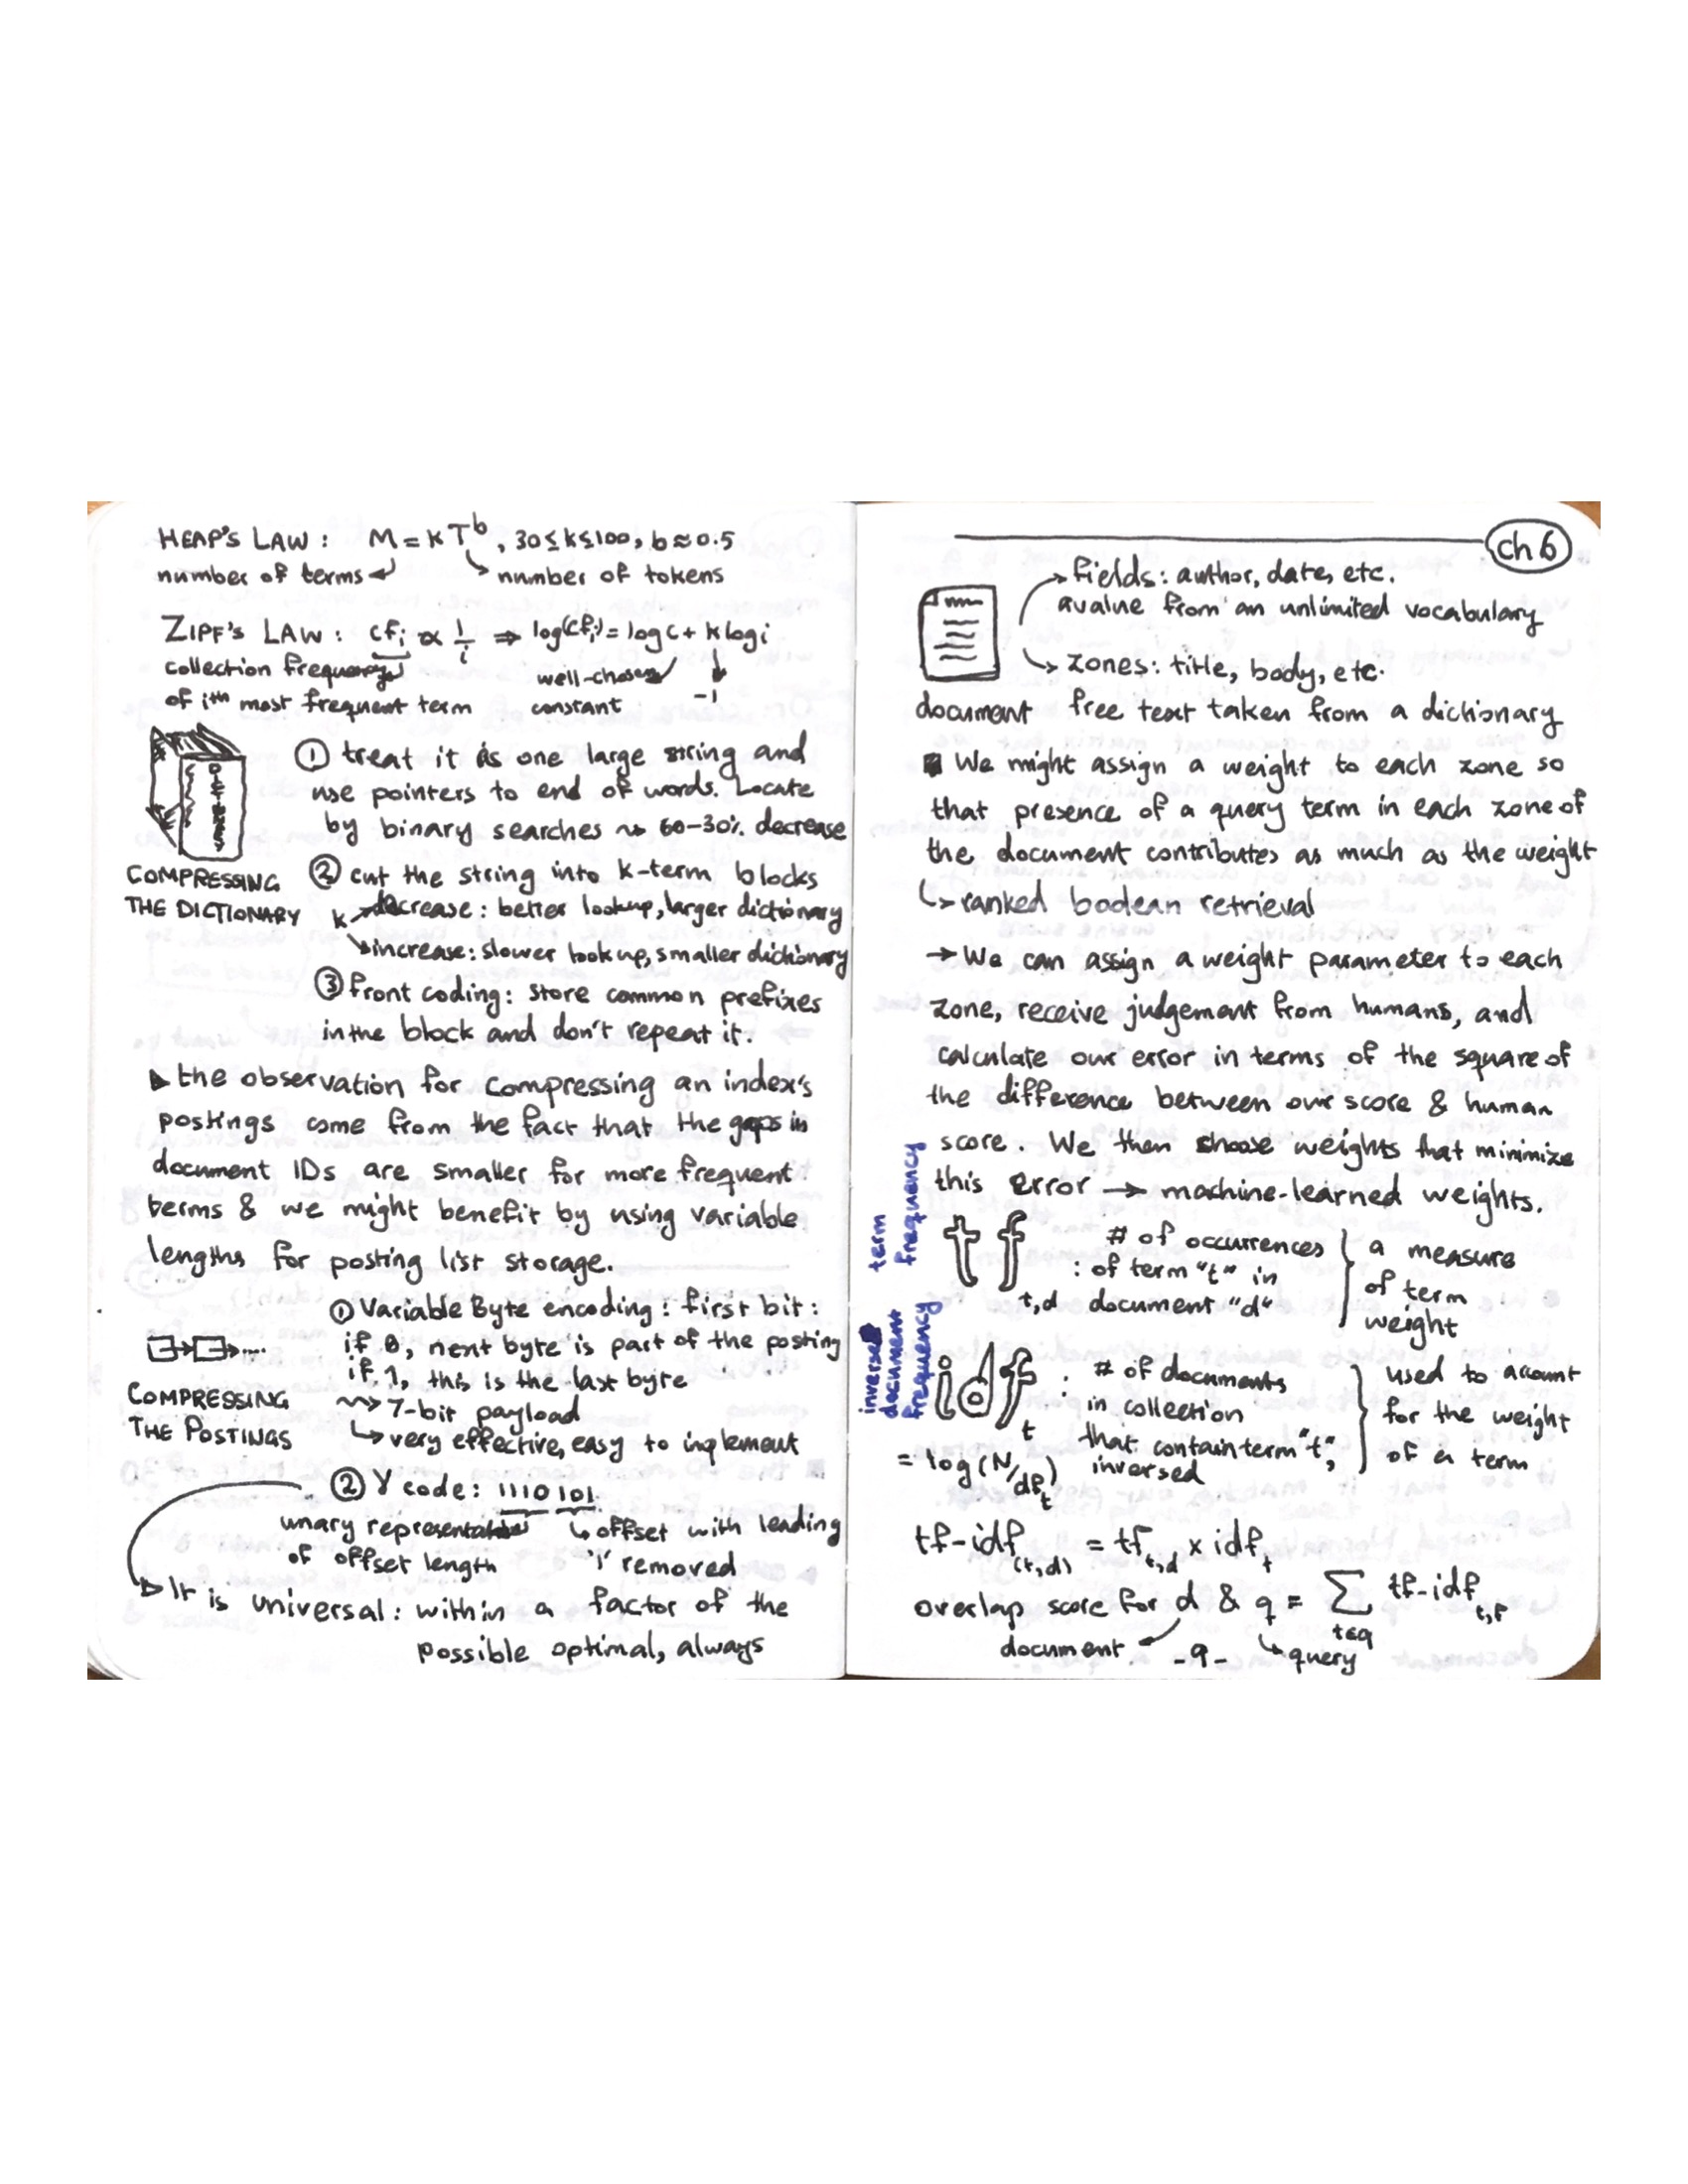 HEAP'S LAW : M = k T^b , 30 ≤ k ≤ 100, b ≈ 0.5
number of terms number of tokens
ZIPF'S LAW : cf_i ∝ 1/i ⇒ log(cf_i) = log c + k log i
collection frequency well-chosen
of ith most frequent term constant -1
① treat it as one large string and
use pointers to end of words. Locate
by binary searches ⇝ 60-30% decrease
COMPRESSING
THE DICTIONARY
② cut the string into k-term blocks
k decrease: better lookup, larger dictionary
increase: slower lookup, smaller dictionary
③ front coding: store common prefixes
in the block and don't repeat it.
▶ the observation for compressing an index's
postings come from the fact that the gaps in
document IDs are smaller for more frequent
terms & we might benefit by using variable
lengths for posting list storage.
① Variable Byte encoding: first bit:
if 0, next byte is part of the posting
if 1, this is the last byte
⇝ 7-bit payload
↳ very effective, easy to implement
COMPRESSING
THE POSTINGS
② γ code: 1110 101
unary representation ↳ offset with leading
of offset length '1' removed
▷ It is universal: within a factor of the
possible optimal, always
ch 6
fields: author, date, etc.
a value from an unlimited vocabulary
↳ zones: title, body, etc.
document free text taken from a dictionary
■ We might assign a weight to each zone so
that presence of a query term in each zone of
the document contributes as much as the weight
↳ ranked boolean retrieval
→ We can assign a weight parameter to each
zone, receive judgement from humans, and
calculate our error in terms of the square of
the difference between our score & human
score. We then choose weights that minimize
this error → machine-learned weights.
term
frequency
tf t,d : # of occurrences
of term "t" in
document "d"
a measure
of term
weight
inverse
document
frequency
idf t : # of documents
in collection
that contain term "t",
inversed
= log(N/df_t)
used to account
for the weight
of a term
tf-idf (t,d) = tf t,d × idf t
overlap score for d & q = ∑ t∈q tf-idf t,f
document query
-9-